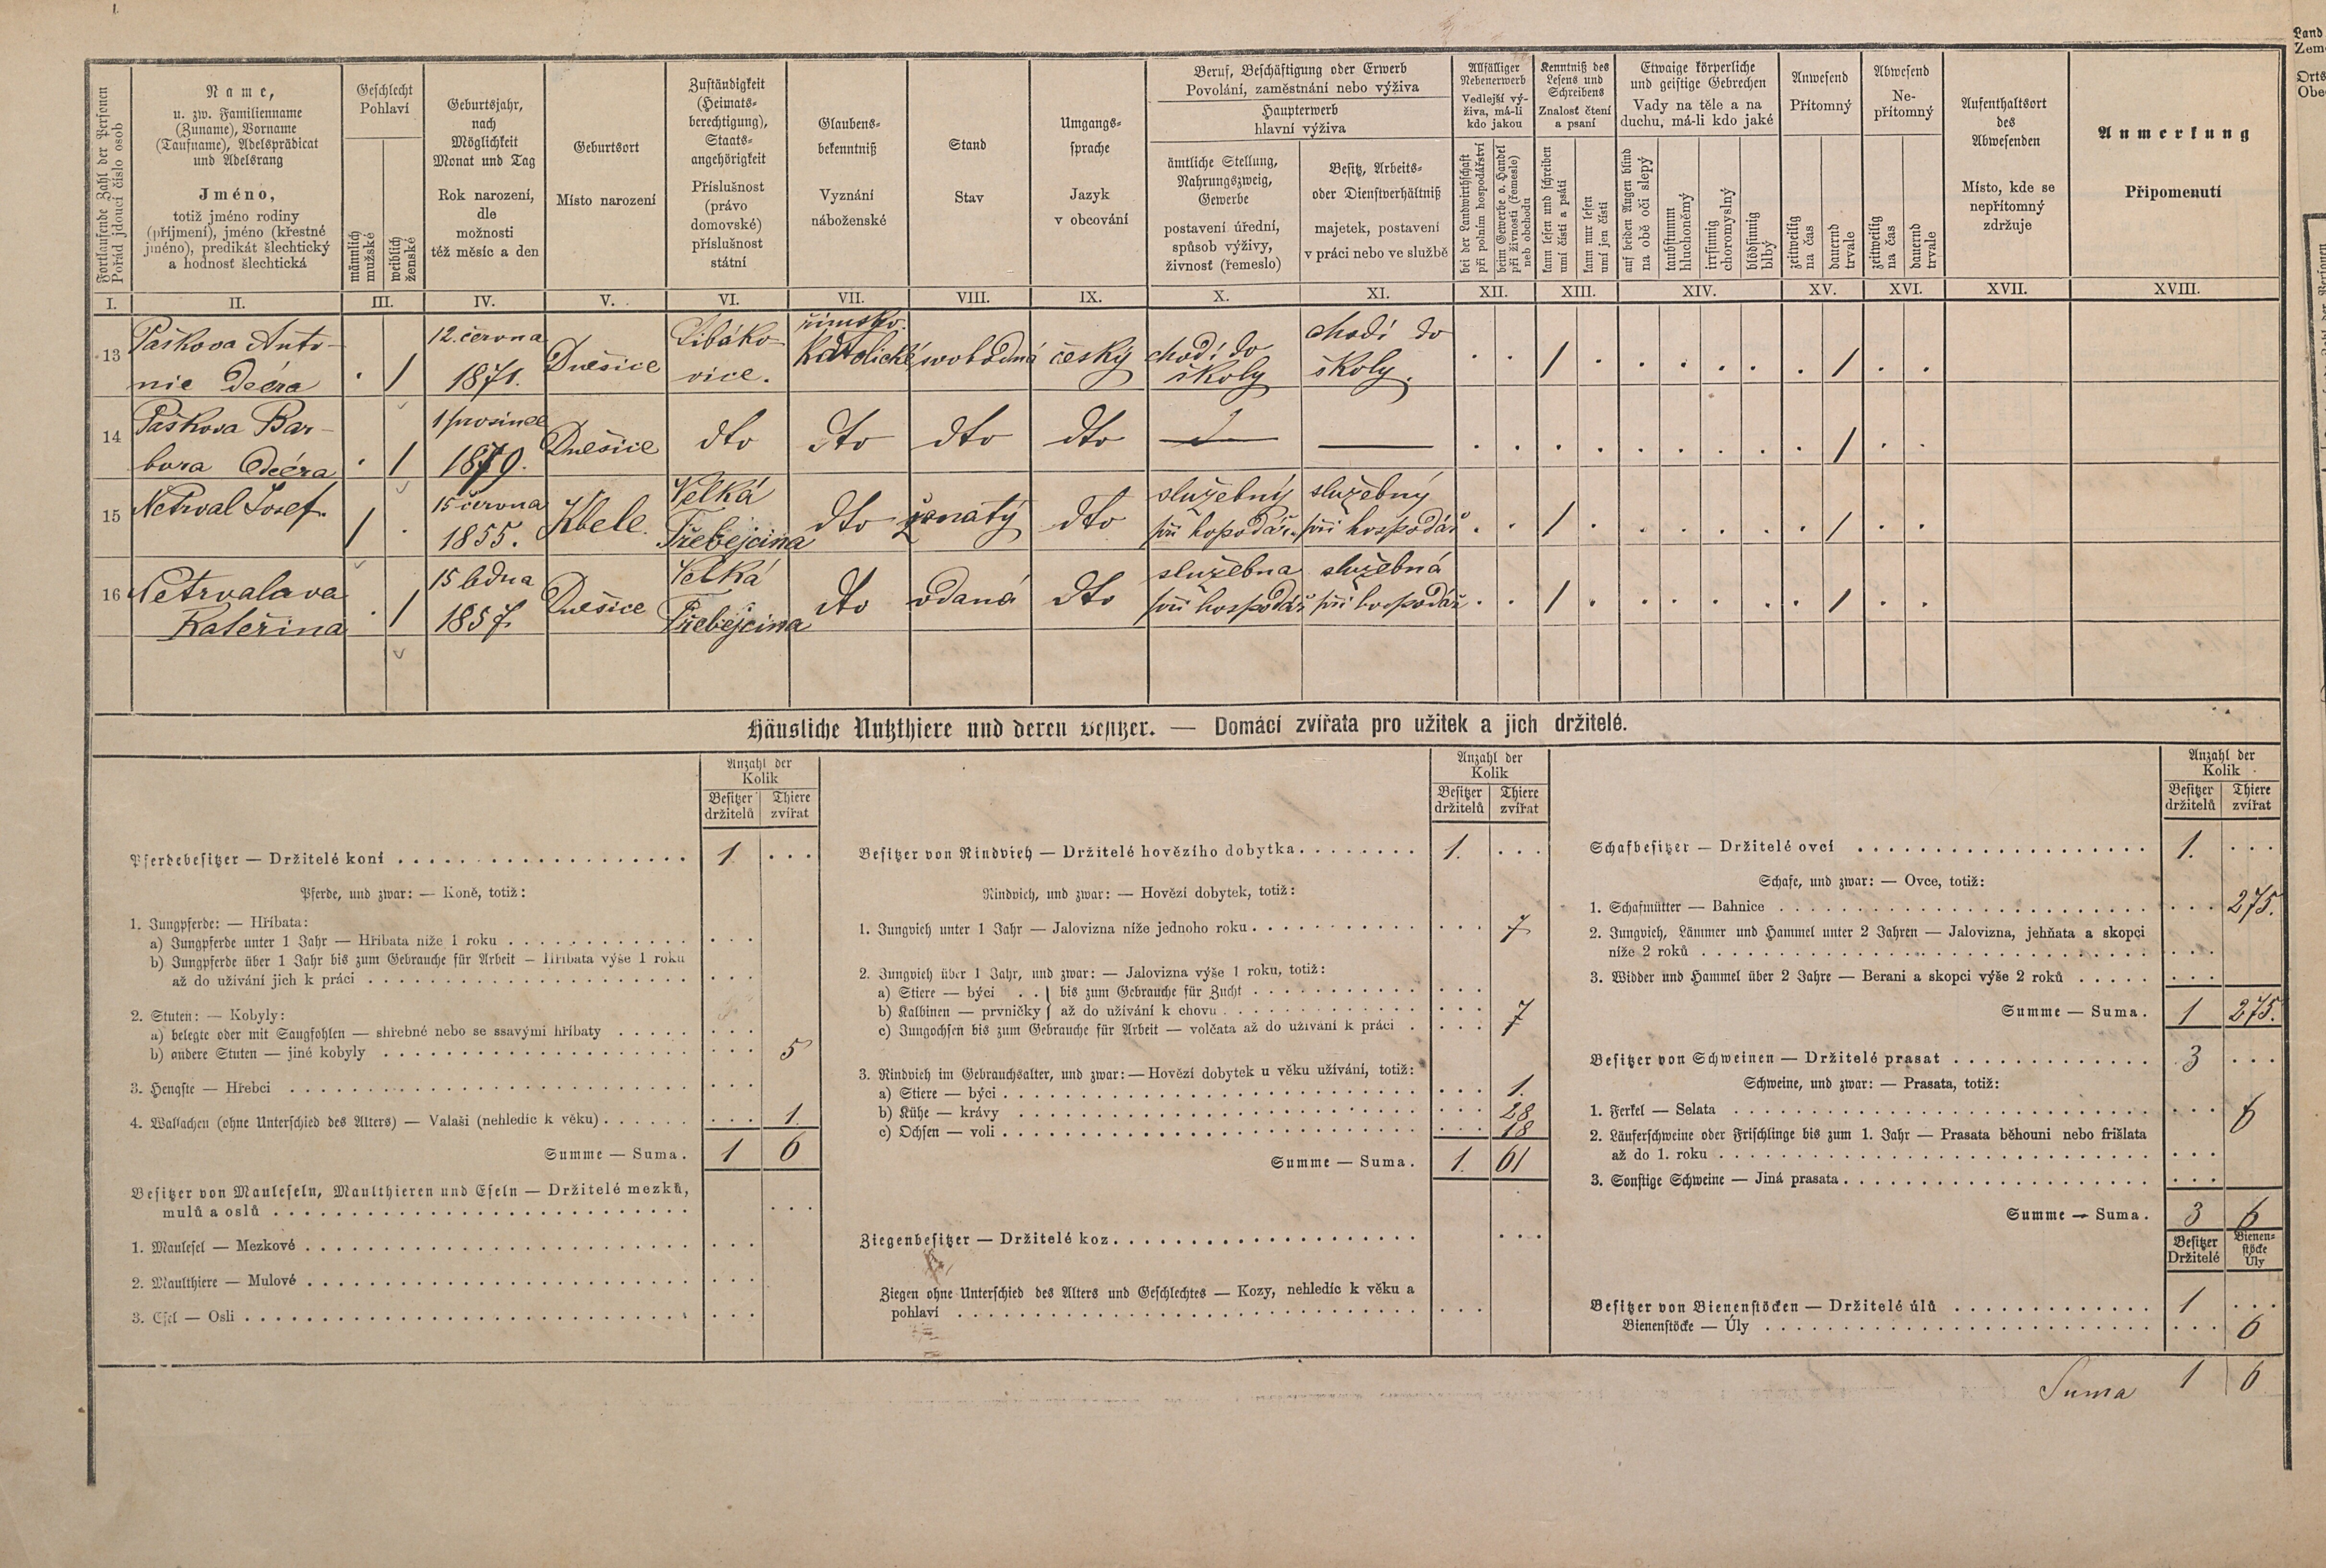 Name,
u. zw. Familienname
(Zuname), Vorname
(Taufname), Adelsprädicat
und Adelsrang
Jméno,
totiž jméno rodiny
(příjmení), jméno (křestné
jméno), predikát šlechtický
a hodnosť šlechtická
Fortlaufende Zahl der Personen
Pořád jdoucí číslo osob
Geschlecht
Pohlaví
männlich
mužské
weiblich
ženské
Geburtsjahr,
nach
Möglichkeit
Monat und Tag
Rok narození,
dle
možnosti
též měsíc a den
Geburtsort
Místo narození
Zuständigkeit
(Heimats-
berechtigung),
Staats-
angehörigkeit
Příslušnost
(právo
domovské)
příslušnost
státní
Glaubens-
bekenntniß
Vyznání
náboženské
Stand
Stav
Umgangs-
sprache
Jazyk
v obcování
Beruf, Beschäftigung oder Erwerb
Povolání, zaměstnání nebo výživa
Haupterwerb
hlavní výživa
ämtliche Stellung,
Nahrungszweig,
Gewerbe
postavení úřední,
spůsob výživy,
živnosť (řemeslo)
Besitz, Arbeits-
oder Dienstverhältniß
majetek, postavení
v práci nebo ve službě
Allfälliger
Nebenerwerb
Vedlejší vý-
živa, má-li
kdo jakou
bei der Landwirthschaft
při polním hospodářství
beim Gewerbe o. Handel
při živnosti (řemeslo)
neb obchodu
Kenntniß des
Lesens und
Schreibens
Znalosť čtení
a psaní
kann lesen und schreiben
umí čísti a psáti
kann nur lesen
umí jen čísti
Etwaige körperliche
und geistige Gebrechen
Vady na těle a na
duchu, má-li kdo jaké
auf beiden Augen blind
na obě oči slepý
taubstumm
hluchoněmý
irrsinnig
choromyslný
blödsinnig
blbý
Anwesend
Přítomný
zeitweilig
na čas
dauernd
trvale
Abwesend
Ne-
přítomný
zeitweilig
na čas
dauernd
trvale
Aufenthaltsort
des
Abwesenden
Místo, kde se
nepřítomný
zdržuje
Anmerkung
Připomenutí
I. II. III. IV. V. VI. VII. VIII. IX. X. XI. XII. XIII. XIV. XV. XVI. XVII. XVIII.
13 Paškova Anto-
nie Dcéra . / 12. června
1871. Dnešice Libáko-
vice. římsko.
katolické svobodná český chodí do
školy chodí do
školy. . . / . . . . . . / . .
14 Paškova Bar-
bora Dcéra . / 1 prosince
1879. Dnešice dto dto dto dto — — . . . . . . . . . / . .
15 Netrval Josef. / . 15 června
1855. Kbele. Velká
Třebejcina dto ženatý dto služebný
při hopodář. služebný
při hospodář . . / . . . . . . / . .
16 Netrvalova
Kateřina . / 15 ledna
1857. Dnešice Velká
Třebejcina dto vdaná dto služebna
při hospodář služebná
při hospodář . . / . . . . . . / . .
Häusliche Nutzthiere und deren Besitzer. — Domácí zvířata pro užitek a jich držitelé.
Anzahl der
Kolik
Besitzer Thiere
držitelů zvířat
Pferdebesitzer — Držitelé koní 1 . . .
Pferde, und zwar: — Koně, totiž:
1. Jungpferde: — Hříbata:
a) Jungpferde unter 1 Jahr — Hříbata níže 1 roku . . .
b) Jungpferde über 1 Jahr bis zum Gebrauche für Arbeit — Hříbata výše 1 roku
až do užívání jich k práci . . .
2. Stuten: — Kobyly:
a) belegte oder mit Saugfohlen — shřebné nebo se ssavými hříbaty . . .
b) andere Stuten — jiné kobyly . . . 5
3. Hengste — Hřebci . . .
4. Wallachen (ohne Unterschied des Alters) — Valaši (nehledíc k věku) . . . 1.
Summe — Suma. 1 6
Besitzer von Mauleseln, Maulthieren und Eseln — Držitelé mezků,
mulů a oslů . . .
1. Maulesel — Mezkové . . .
2. Maulthiere — Mulové . . .
3. Esel — Osli . . .
Anzahl der
Kolik
Besitzer Thiere
držitelů zvířat
Besitzer von Rindvieh — Držitelé hovězího dobytka 1. . . .
Rindvieh, und zwar: — Hovězí dobytek, totiž:
1. Jungvieh unter 1 Jahr — Jalovizna níže jednoho roku . . . 7
2. Jungvieh über 1 Jahr, und zwar: — Jalovizna výše 1 roku, totiž:
a) Stiere — býci . . } bis zum Gebrauche für Zucht . . .
b) Kalbinen — prvničky } až do užívání k chovu . . . 7
c) Jungochsen bis zum Gebrauche für Arbeit — volčata až do užívání k práci . . .
3. Rindvieh im Gebrauchsalter, und zwar: — Hovězí dobytek u věku užívání, totiž:
a) Stiere — býci . . . 1.
b) Kühe — krávy . . . 28
c) Ochsen — voli . . . 18
Summe — Suma. 1. 61
Ziegenbesitzer — Držitelé koz . . .
Ziegen ohne Unterschied des Alters und Geschlechtes — Kozy, nehledíc k věku a
pohlaví . . .
Anzahl der
Kolik
Besitzer Thiere
držitelů zvířat
Schafbesitzer — Držitelé ovcí 1. . . .
Schafe, und zwar: — Ovce, totiž:
1. Schafmütter — Bahnice . . . 275.
2. Jungvieh, Lämmer und Hammel unter 2 Jahren — Jalovizna, jehňata a skopci
níže 2 roků . . .
3. Widder und Hammel über 2 Jahre — Berani a skopci výše 2 roků . . .
Summe — Suma. 1 275.
Besitzer von Schweinen — Držitelé prasat 3 . . .
Schweine, und zwar: — Prasata, totiž:
1. Ferkel — Selata . . . 6
2. Läuferschweine oder Frischlinge bis zum 1. Jahr — Prasata běhouni nebo frišlata
až do 1. roku . . .
3. Sonstige Schweine — Jiná prasata . . .
Summe — Suma. 3 6
Besitzer Bienen-
stöcke
Držitelé Úly
Besitzer von Bienenstöcken — Držitelé úlů 1 . . .
Bienenstöcke — Úly . . . 6
Suma 1 6
Land
Zem
Orts
Obe